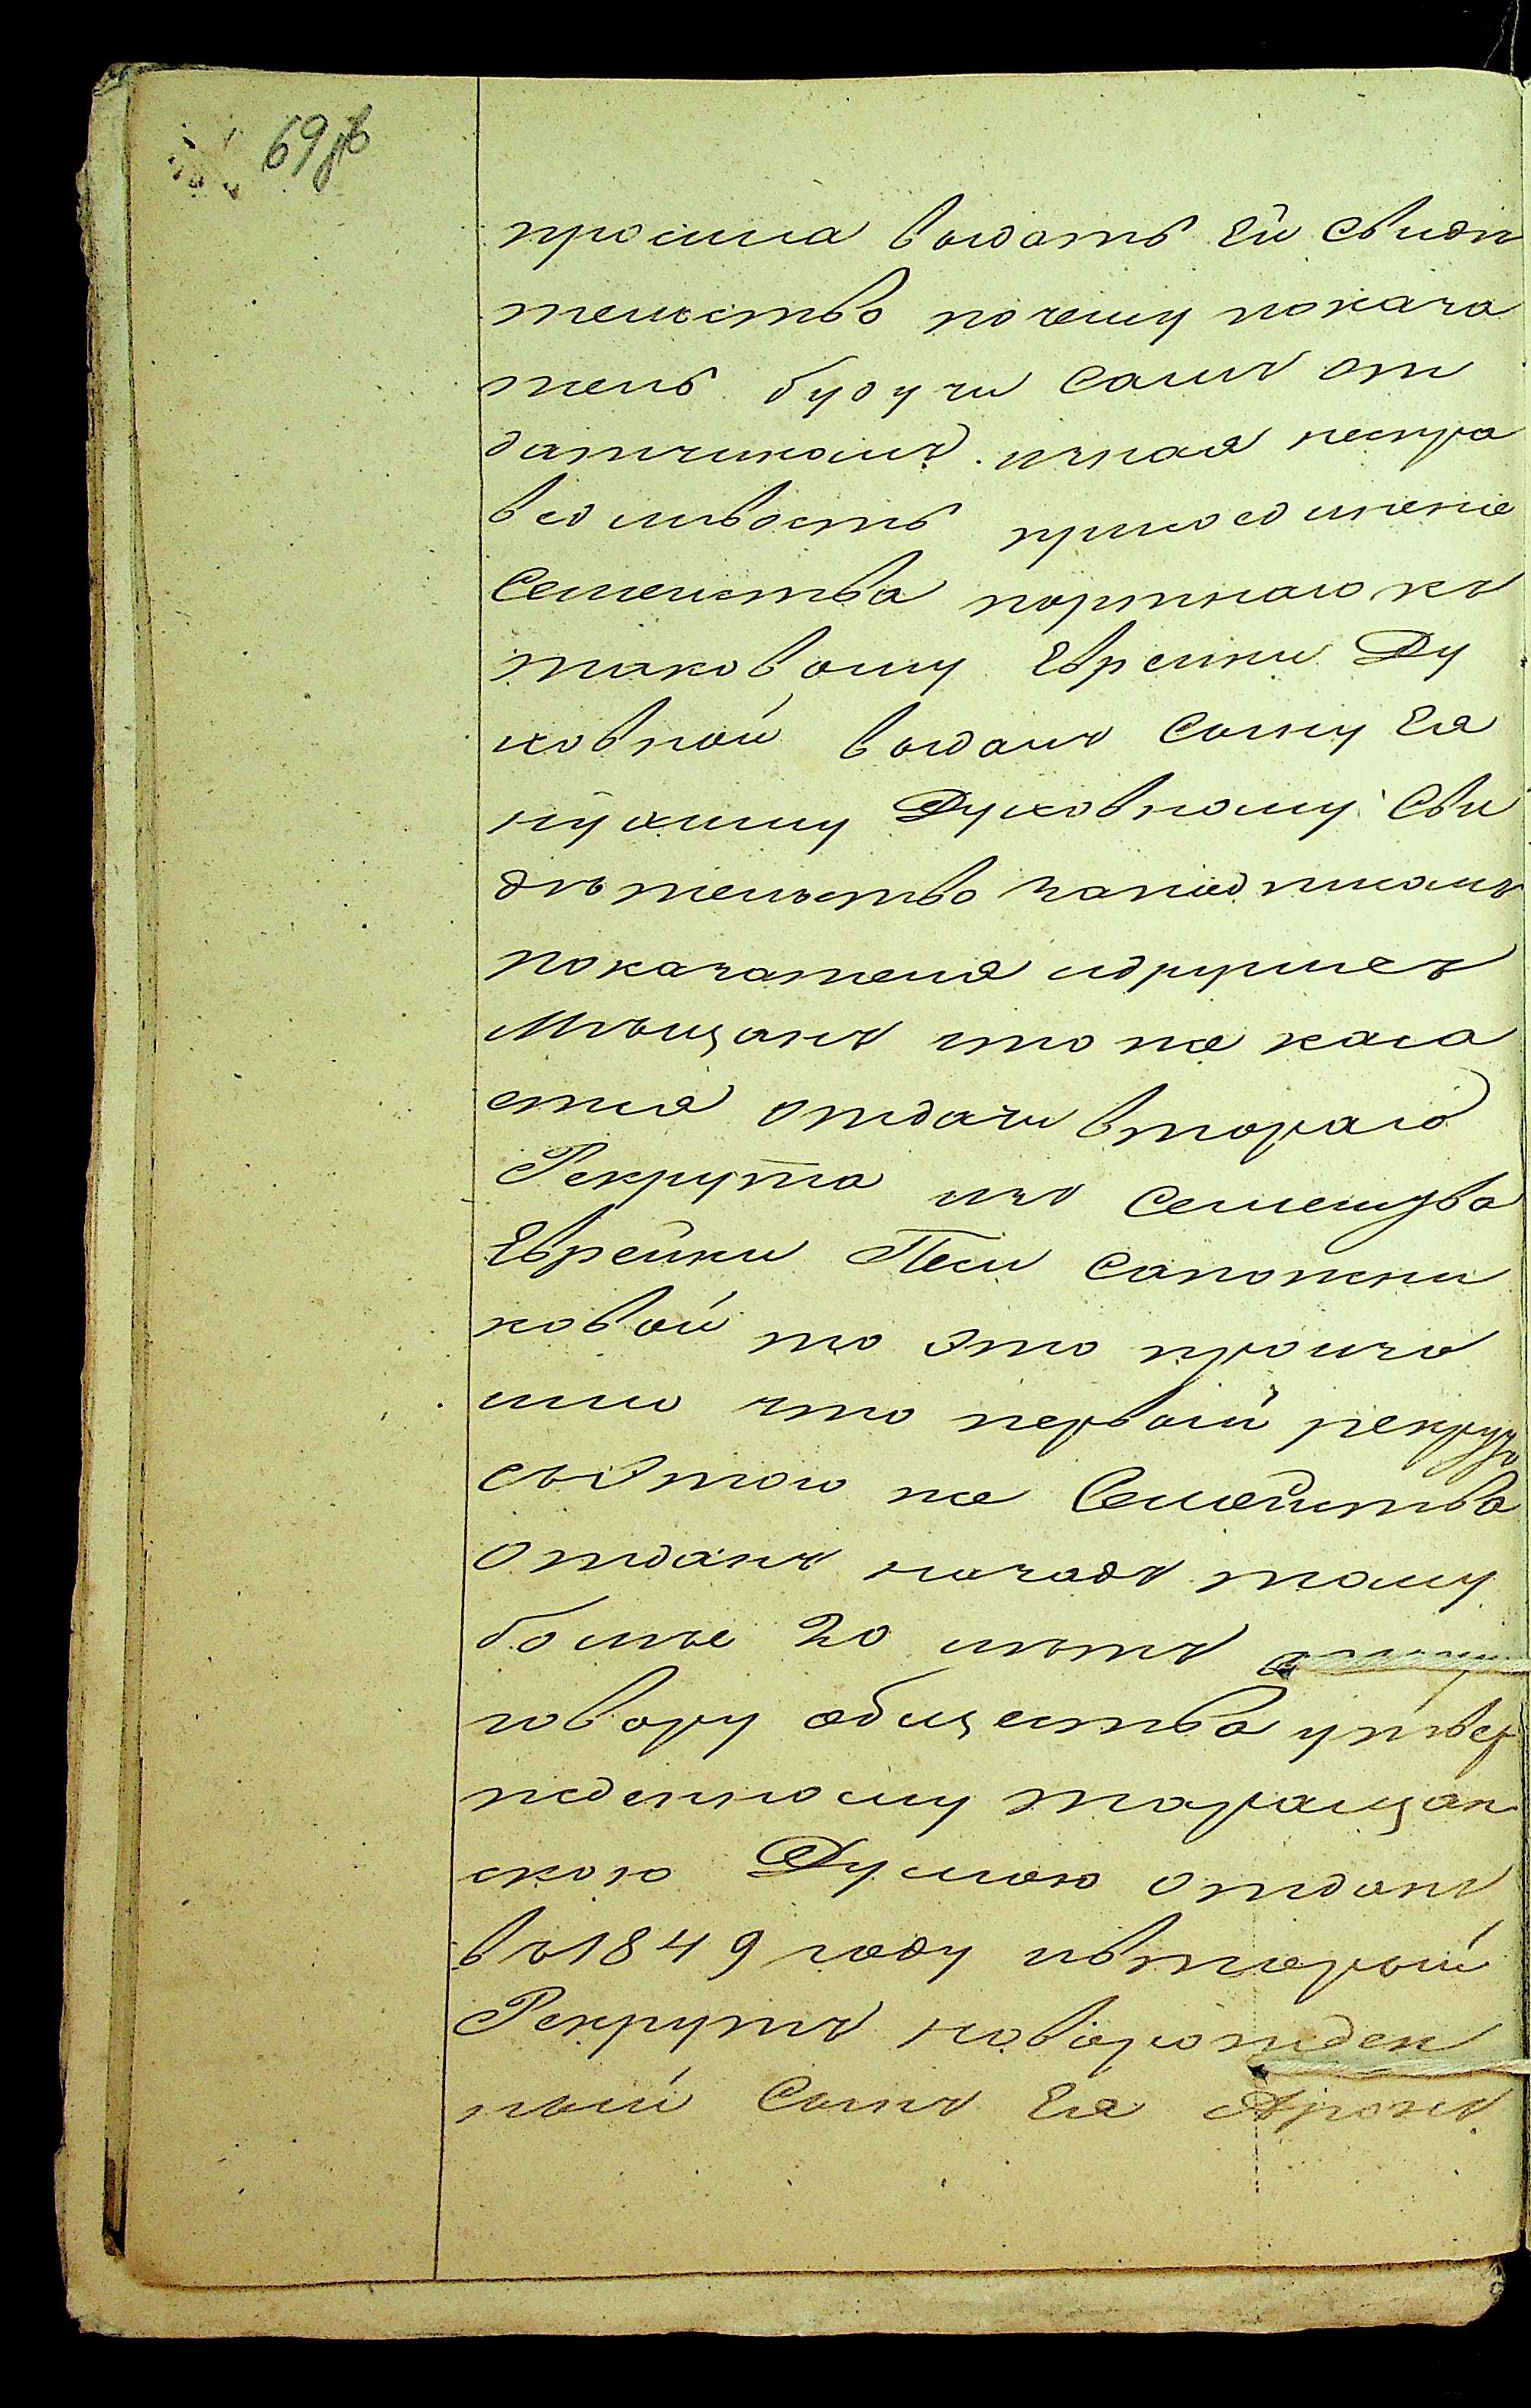 69об
просила выдать ей свидѣ
тельство почему показа
тель будучи самъ от
датчикомъ изная неспра
ведливость присоединенія
Семейства портнаго къ
таковому Еврейки Ду
ховной выдалъ сыну Ея
Нухиму Духовному Сви
дѣтельство заподписомъ
показателя идругихъ
Мѣщанъ что же каса
ется отдачи втораго
Рекрута изъ Семейства
Еврейки Песи Сапожни
ковой то это произо
шло что первый рекрутъ
съэтого же Семейства
отданъ назадъ тому
болѣе 20 лѣтъ
говору общества утвер
жденному Таращан
скою Думою отданъ
въ1849 году ивторый
Рекрутъ новорожден
ный Сынъ Ея Аронъ